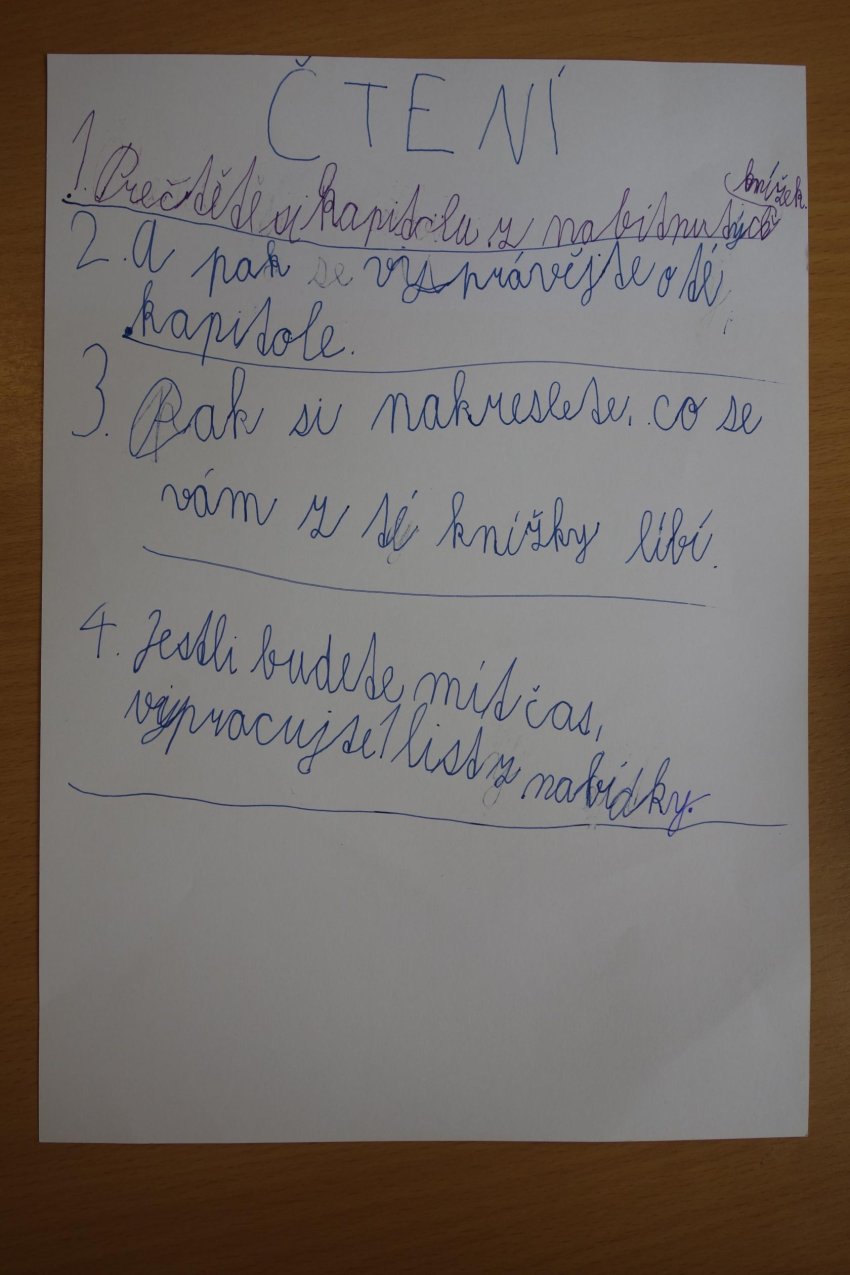 ČTENÍ
1. Prečtětě si kapitolu z nabitnutých knížek.
2. A pak se vysprávějte o té
kapitole.
3. Pak si nakreslete, co se
vám z té knížky líbí.
4. Jestli budete mít čas,
vypracujte 1 list z nabídky.